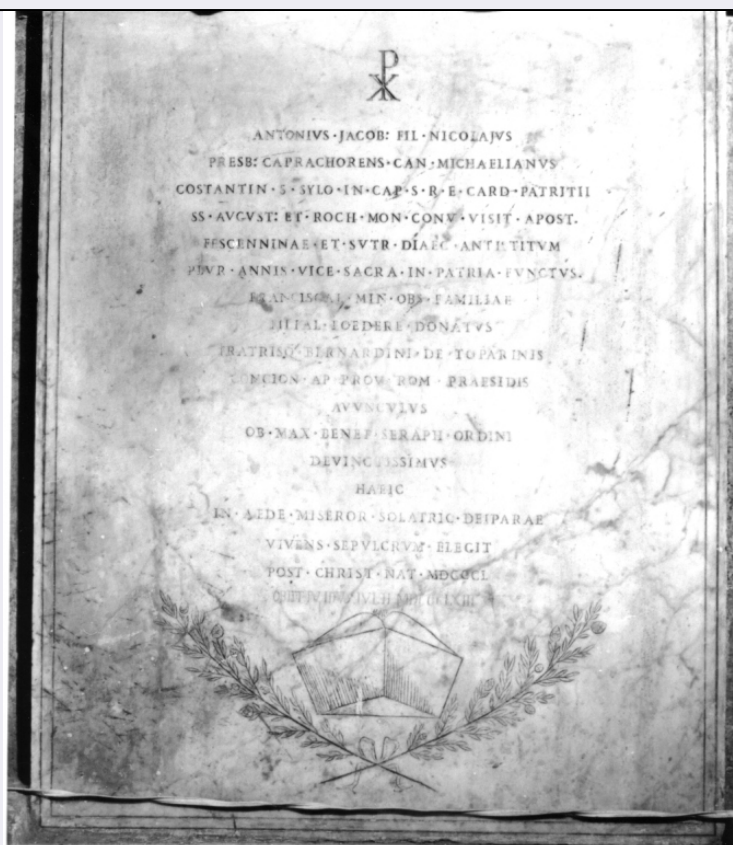 ANTONIVS·JACOB: FIL·NICOLAJVS
PRESB: CAPRACHORENS·CAN·MICHAELIANVS
COSTANTIN·S·SYLO·IN·CAP·S·R·E·CARD·PATRITII
SS·AVGVST: ET·ROCH·MON·CONV·VISIT·APOST.
FESCENNINAE·ET·SVTR·DIAEC·ANTISTITVM
PLVR·ANNIS·VICE·SACRA·IN·PATRIA·FVNCTVS.
MIN·OBS·FAMILIAE
FILIAL·FOEDERE·DONATVS
FRATRISQ·BERNARDINI·DE·TOPARINIS
CONCION·AP·PROV·ROM·PRAESIDIS
AVVNCVLVS
OB·MAX·BENEF·SERAPH·ORDINI
DEVINCTISSIMVS
IN·AEDE·MISEROR·SOLATRIC·DEIPARAE
VIVENS·SEPVLCRVM·ELEGIT
POST·CHRIST·NAT·MDCCCL